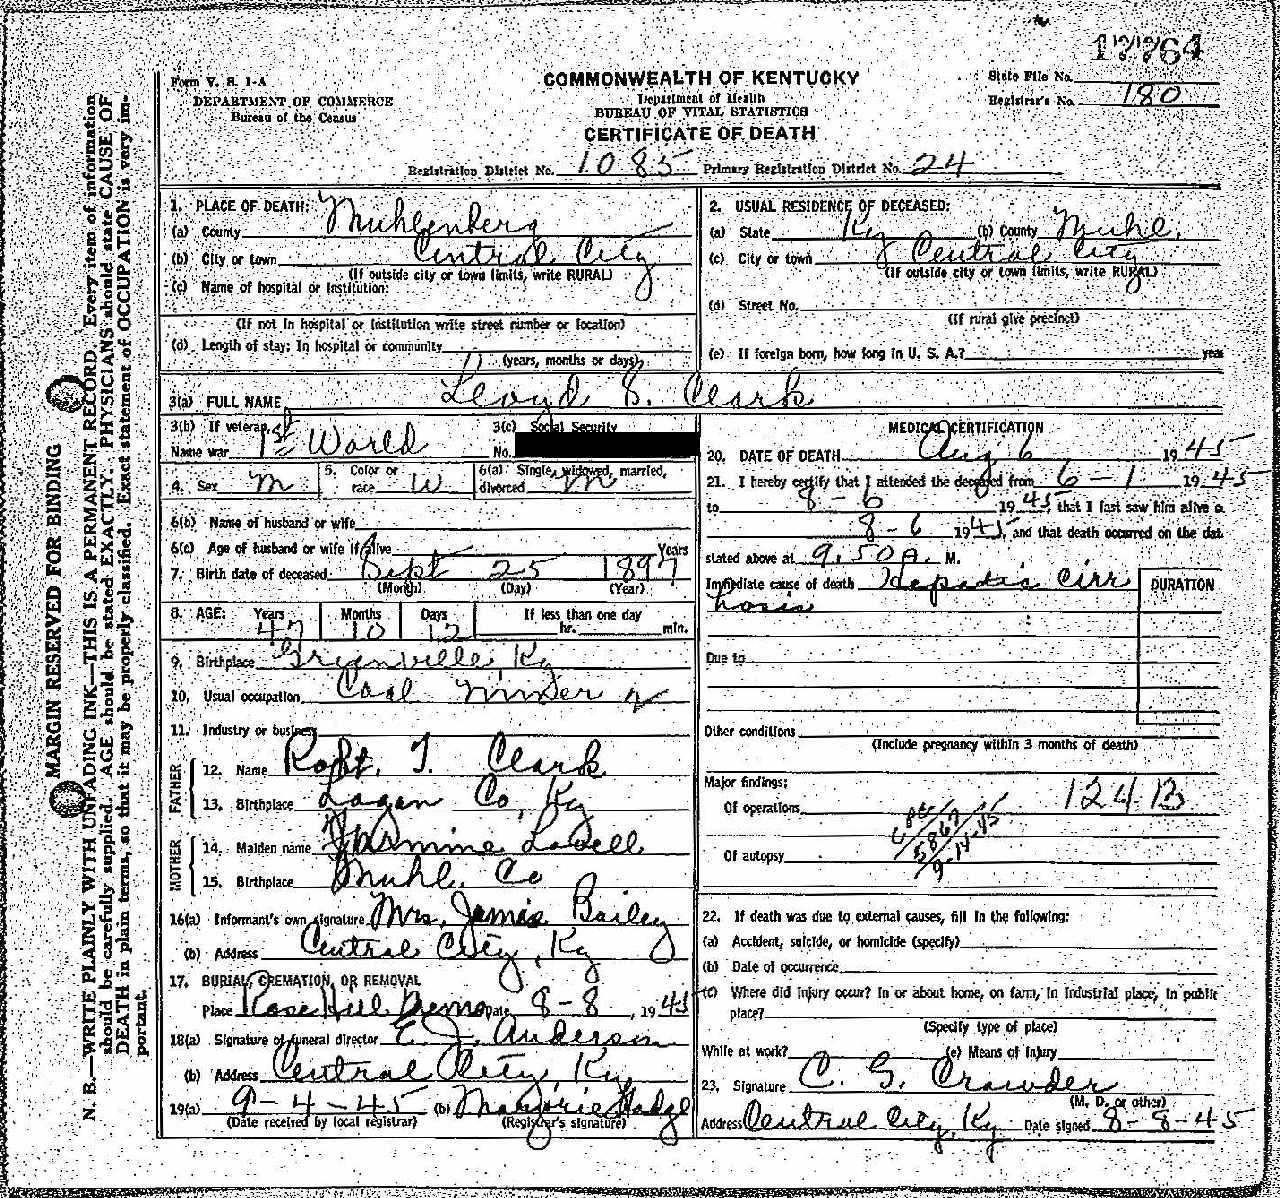 17764
Form V. S. 1-A
COMMONWEALTH OF KENTUCKY
State File No.
DEPARTMENT OF COMMERCE
Department of Health
Registrar's No. 180
Bureau of the Census
BUREAU OF VITAL STATISTICS
CERTIFICATE OF DEATH
Registration District No. 1085 Primary Registration District No. 24
1. PLACE OF DEATH:
(a) County Muhlenberg
(b) City or town Central City
(If outside city or town limits, write RURAL)
(c) Name of hospital or institution:
(If not in hospital or institution write street number or location)
(d) Length of stay: In hospital or community
(years, months or days)
2. USUAL RESIDENCE OF DECEASED:
(a) State Ky (b) County Muhl.
(c) City or town Central City
(If outside city or town limits, write RURAL)
(d) Street No.
(If rural give precinct)
(e) If foreign born, how long in U. S. A.? year
3(a) FULL NAME Lloyd S. Clark
3(b) If veteran, 3(c) Social Security
Name war 1st World No.
4. Sex M 5. Color or race W 6(a) Single, widowed, married, divorced M
6(b) Name of husband or wife
6(c) Age of husband or wife if alive Years
7. Birth date of deceased Sept 25 1897
(Month) (Day) (Year)
8. AGE: Years Months Days If less than one day
47 10 12 hr. min.
9. Birthplace Greenville, Ky
10. Usual occupation Coal miner
11. Industry or business
FATHER
12. Name Robt. T. Clark
13. Birthplace Logan Co, Ky
MOTHER
14. Maiden name Lovell
15. Birthplace Muhl. Co
16(a) Informant's own signature Mrs. James Bailey
(b) Address Central City, Ky
17. BURIAL, CREMATION, OR REMOVAL
Place Rose Hill Date 8-8, 1945
18(a) Signature of funeral director E. J. Anderson
(b) Address Central City, Ky
19(a) 9-4-45 (b) Marjorie Hodge
(Date received by local registrar) (Registrar's signature)
MEDICAL CERTIFICATION
20. DATE OF DEATH Aug 6 1945
21. I hereby certify that I attended the deceased from 6-1 1945
to 8-6 1945, that I last saw him alive o
8-6 1945, and that death occurred on the dat
stated above at 9:50 A. M.
Immediate cause of death Hepatic Cirr DURATION
hosis
Due to
Other conditions
(Include pregnancy within 3 months of death)
Major findings:
Of operations 124B
5867
9-14-45
Of autopsy
22. If death was due to external causes, fill in the following:
(a) Accident, suicide, or homicide (specify)
(b) Date of occurrence
(c) Where did injury occur? In or about home, on farm, in industrial place, in public
place?
(Specify type of place)
While at work? (e) Means of injury
23. Signature C. G. Crowder
(M. D. or other)
Address Central City, Ky Date signed 8-8-45
MARGIN RESERVED FOR BINDING
N. B.—WRITE PLAINLY WITH UNFADING INK—THIS IS A PERMANENT RECORD. Every item of information
should be carefully supplied. AGE should be stated EXACTLY. PHYSICIANS should state CAUSE OF
DEATH in plain terms, so that it may be properly classified. Exact statement of OCCUPATION is very im-
portant.